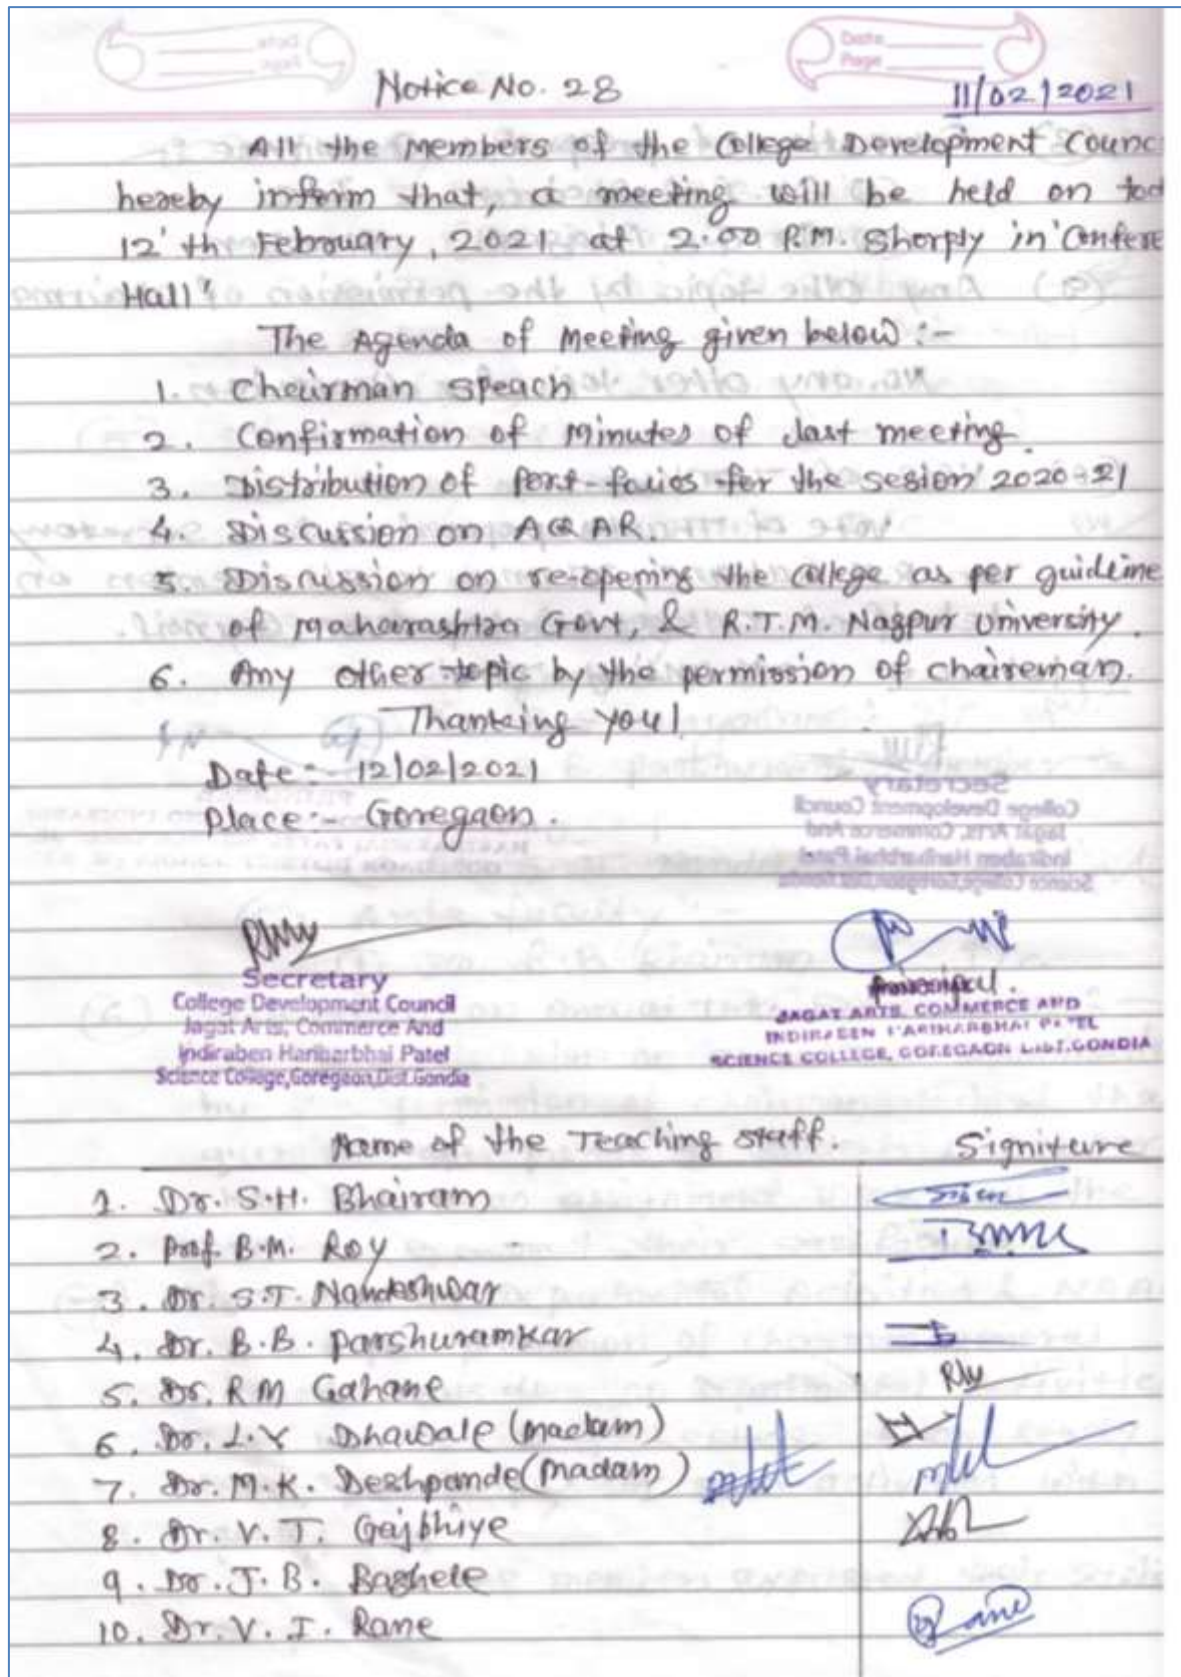 Date
Page
Notice No. 28
11/02/2021
All the Members of the College Development Counc
hereby inform that, a meeting will be held on tod
12'th February, 2021 at 2.00 P.M. Shorply in 'Confere
Hall'
The Agenda of Meeting given below :-
1. Cheirman Speach
2. Confirmation of Minutes of last meeting.
3. Distribution of for the sesion 2020-21
4. Discussion on AQAR.
5. Discussion on re-opening the college as per guidline
of Maharashtra Govt, & R.T.M. Nagpur University.
6. Any other topic by the permission of chaireman.
Thanking you!
Date :- 12/02/2021
Place :- Goregaon.
Secretary
College Development Council
Jagat Arts, Commerce And
Indiraben Hariharbhai Patel
Science College, Goregaon, Dist. Gondia
Principal.
JAGAT ARTS, COMMERCE AND
INDIRABEN HARIHARBHAI PATEL
SCIENCE COLLEGE, GOREGAON DIST. GONDIA
Name of the Teaching staff. Signiture
1. Dr. S.H. Bhairam
2. Prof. B.M. Roy
3. Dr. S.T. Nandeshwar
4. Dr. B.B. Parshuramkar
5. Dr. R M Gahane
6. Dr. L.Y Dhawale (madam)
7. Dr. M.K. Deshpande (Madam)
8. Dr. V.T. Gajbhiye
9. Dr. J.B. Baghele
10. Dr. V.I. Rane